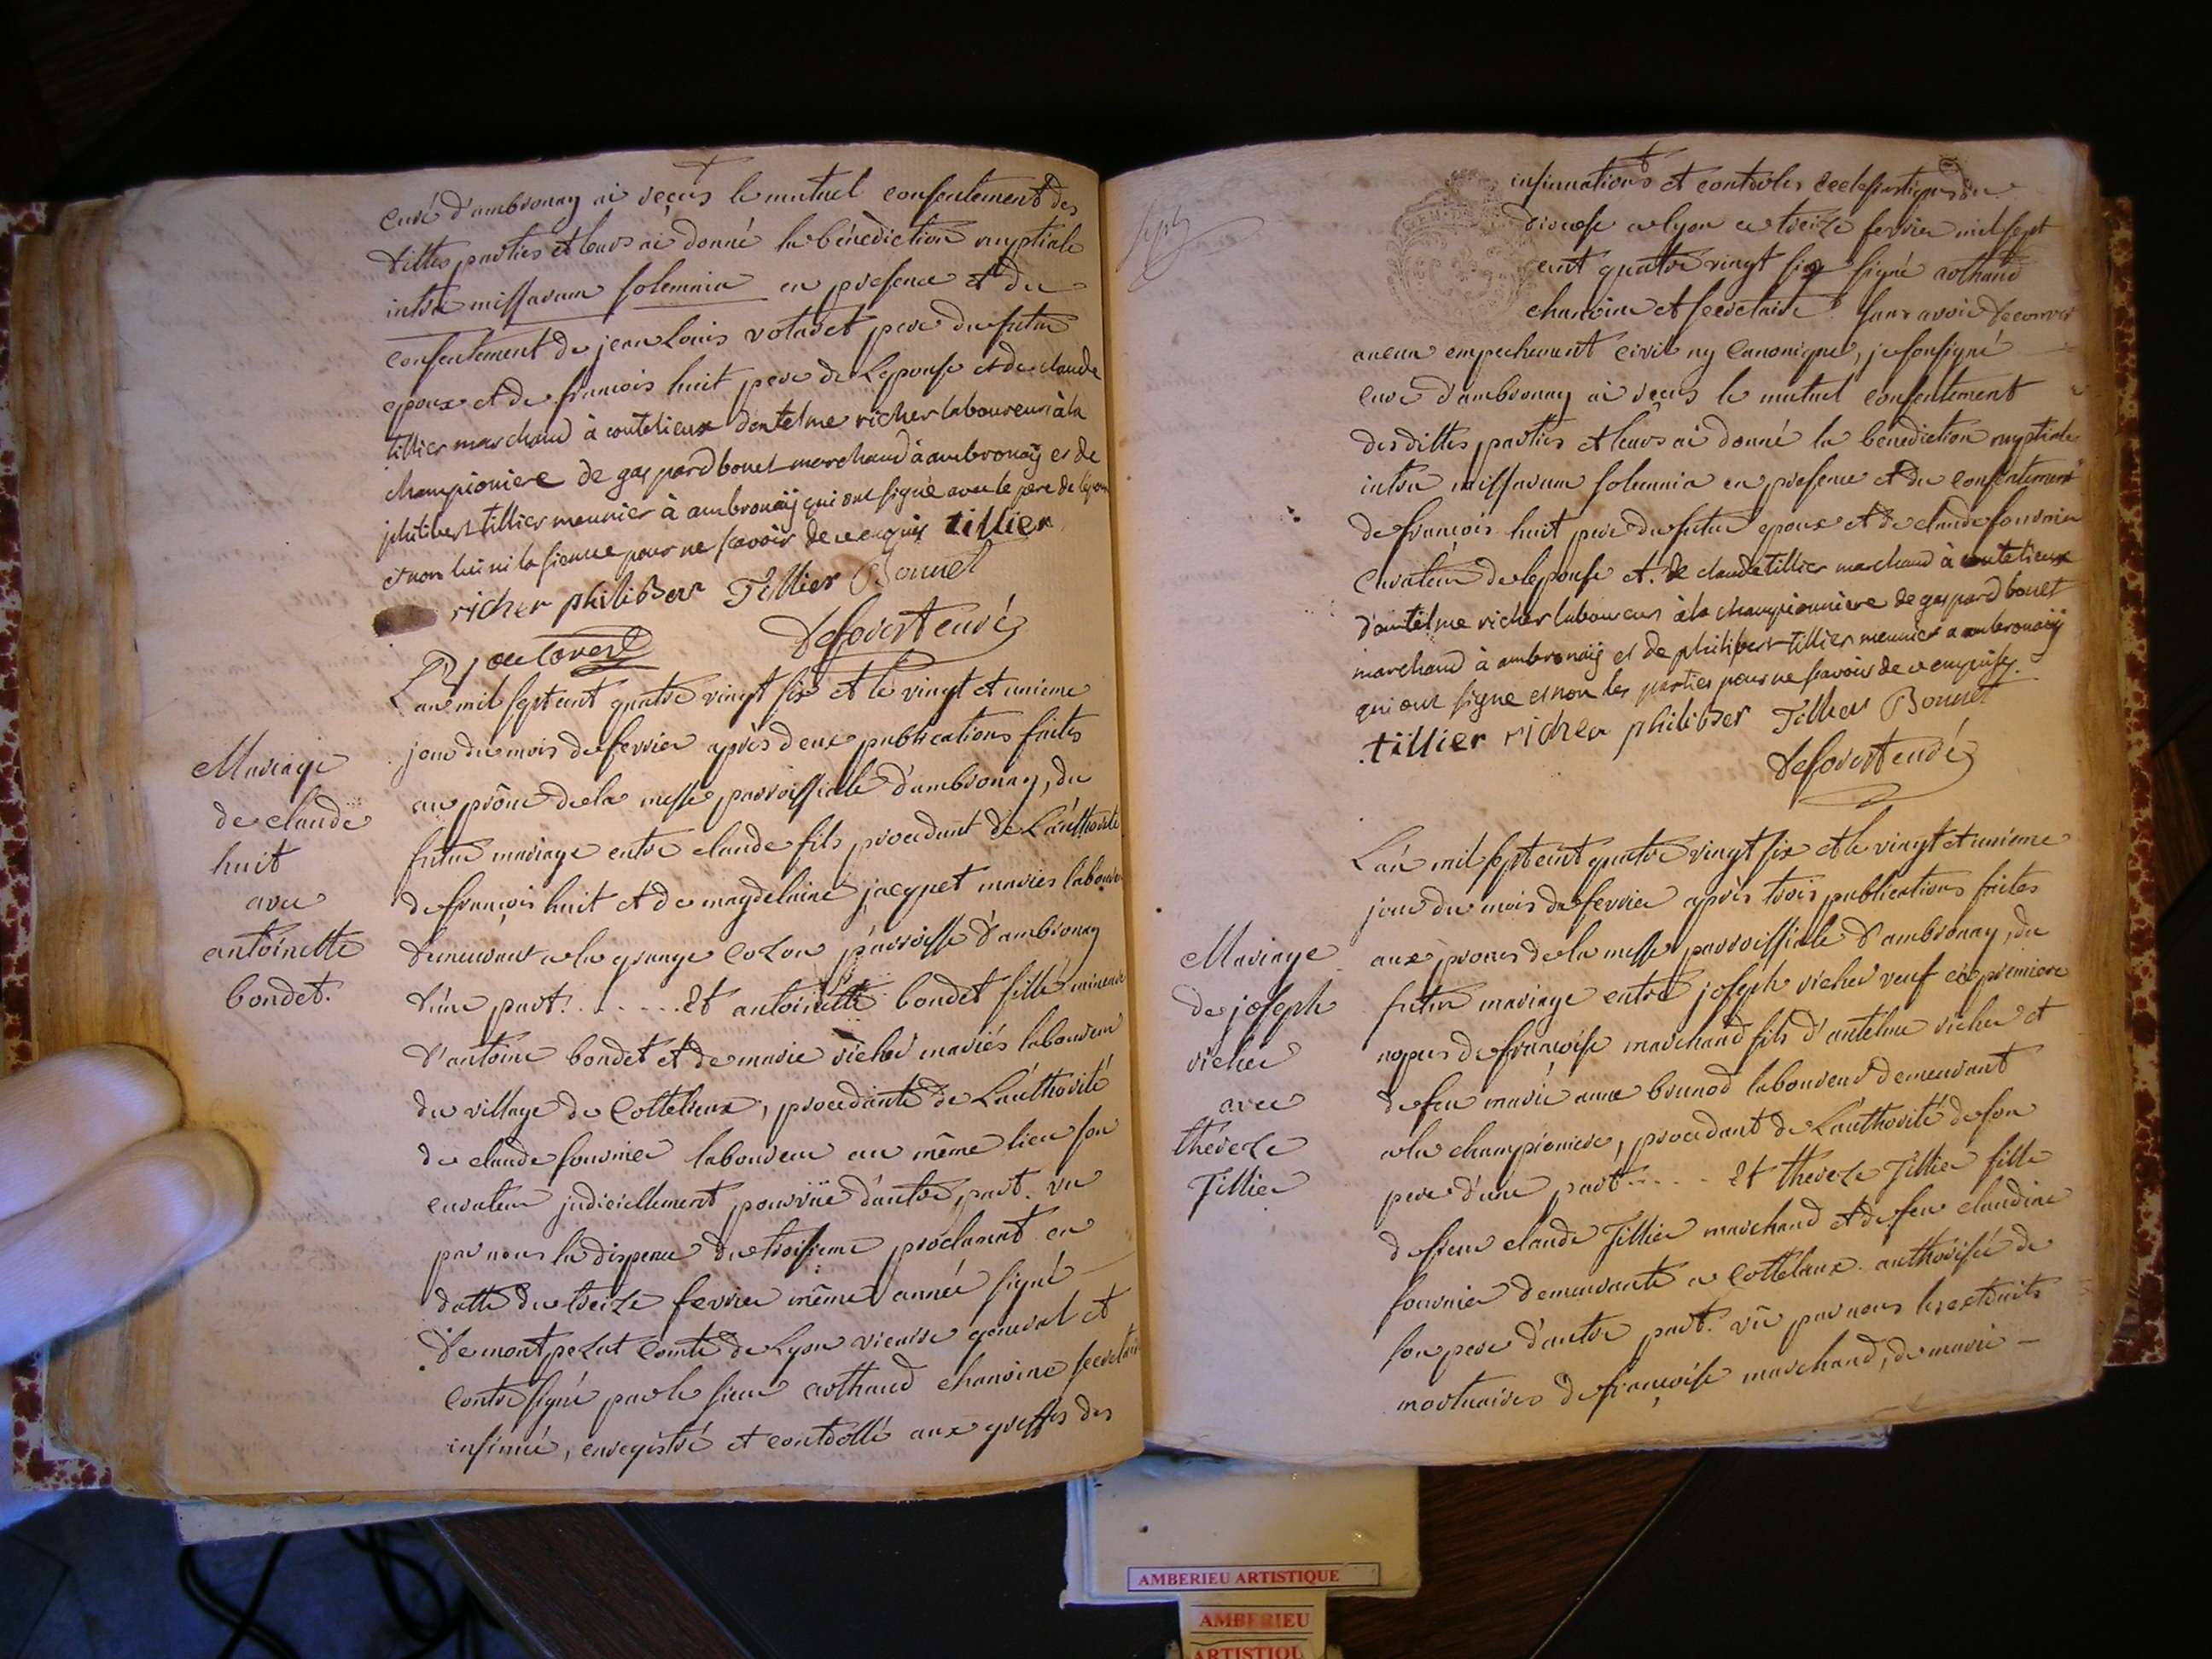 curé d'ambronay ai reçus le mutuel consentement des
dittes parties et leurs ai donné la bénédiction nuptiale
intra missarum solemnia en presence et du
consentement de jean Louis votaret pere du futur
epoux et de francois huit pere de Lepouse et de claude
tillier marchand à coutelieux dantelme richer laboureur à la
championiere de gaspard bonet marchand à ambronaÿ et de
philibert tillier meunier à ambronaÿ qui ont signé avec le pere de lépoux
et non lui ni la sienne pour ne scavoir de ce enquis tillier
richer philiber Tillier Bonnet
Deforest curé
L'an mil sept cent quatre vingt six et le vingt et unieme
jour du mois de fevrier après deux publications faites
au prône de la messe parroissiale d'ambronay, du
futur mariage entre claude fils procedant de L'authorité
de françois huit et de magdelaine jacquet mariés laboureurs
demeurant a la grange Cozon parroisse d'ambronay
d'une part. . . . . . Et antoinette bondet fille mineure
d'antoine bondet et de marie richer mariés laboureurs
du village de Cottelieux, procedante de L'authorité
de claude fournier laboureur au même lieu son
curateur judiciellement pourvüe d'autre part. vu
par nous la dispence du troisieme proclamat en
datte du treize fevrier même année signé
De montpezat Comte de Lyon vicaire general et
Contresigné par le sieur arthaud chanoine secretaire
insinué, enregistré et controllé aux greffes des
Mariage
de claude
huit
avec
antoinette
bondet.
insinuations et controles ecclesiastiques du
diocese a lyon ce treize fevrier mil sept
cent quatre vingt six signé arthaud
chanoine et secretaire. sans avoir decouvert
aucun empechement civil ny Canonique, je soussigné
curé d'ambronay ai reçus le mutuel consentement
des dittes parties et leurs ai donné la benediction nuptiale
intra missarum solemnia en presence et du consentement
de françois huit pere du futur epoux et de claude fournier
Curateur de lepouse et. de claude tillier marchand à coutelieux
d'antelme richer laboureur à la championniere de gaspard bonet
marchand à ambronaÿ et de philibert tillier meunier a ambronaÿ
qui ont signe et non les parties pour ne scavoir de ce enquises.
tillier richer philiber Tillier Bonnet
Deforest curé
L'an mil sept cent quatre vingt six et le vingt et unieme
jour du mois de fevrier après trois publications faites
aux prones de la messe parroissiale d'ambronay, du
futur mariage entre joseph richer veuf en premiere
nopces de françoise marchand fils d'antelme richer et
de feu marie anne brunod laboureur demeurant
a la championiere, procedant de L'authorité de son
pere d'une part . . . . . Et thereze Tillier fille
de sieur claude Tillier marchand et de feu claudine
fournier demeurante a Cottelieux authorisée de
son pere d'autre part. vû par nous les extraits
mortuaires de françoise marchand, de marie
Mariage
de joseph
richer
avec
thereze
Tillier
AMBERIEU ARTISTIQUE
AMBERIEU
ARTISTIQU